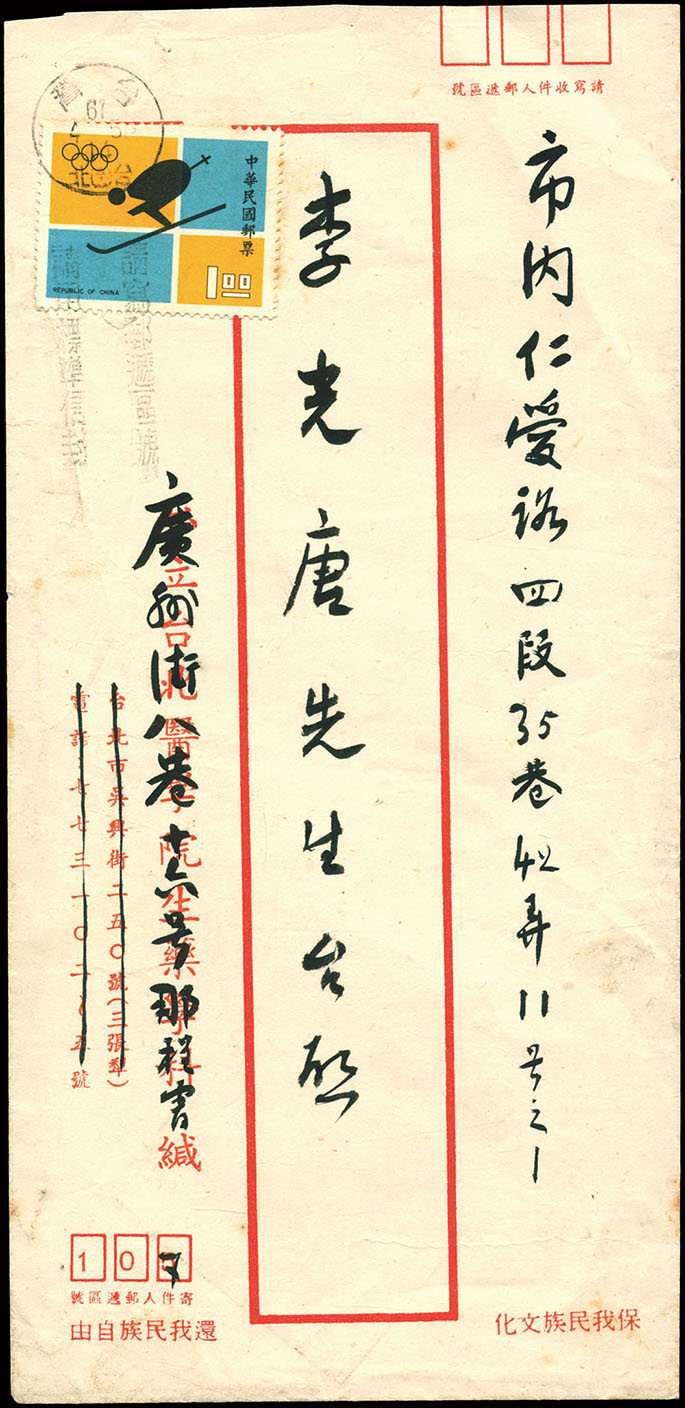 請寫收件人郵遞區號
市內仁愛路四段35巷42弄11号之1
李光唐先生台啟
中華民國郵票
1.00
REPUBLIC OF CHINA
67
請寫郵遞區號
請用標準信封
廣州街八巷十六号那程霄
私立台北醫學院生藥學科緘
台北市吳興街二五〇號(三張犂)
電話七七三一〇二〜五號
10
寄件人郵遞區號
還我民族自由
保我民族文化